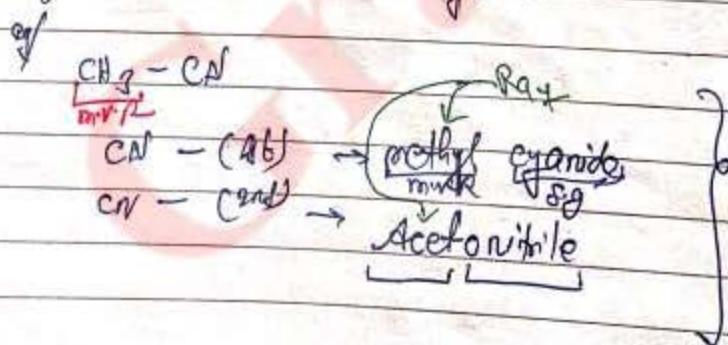 eg
CH3 - CN
CN - (1st) → methyl cyanide
s.g
CN - (2nd) →
Acetonitrile